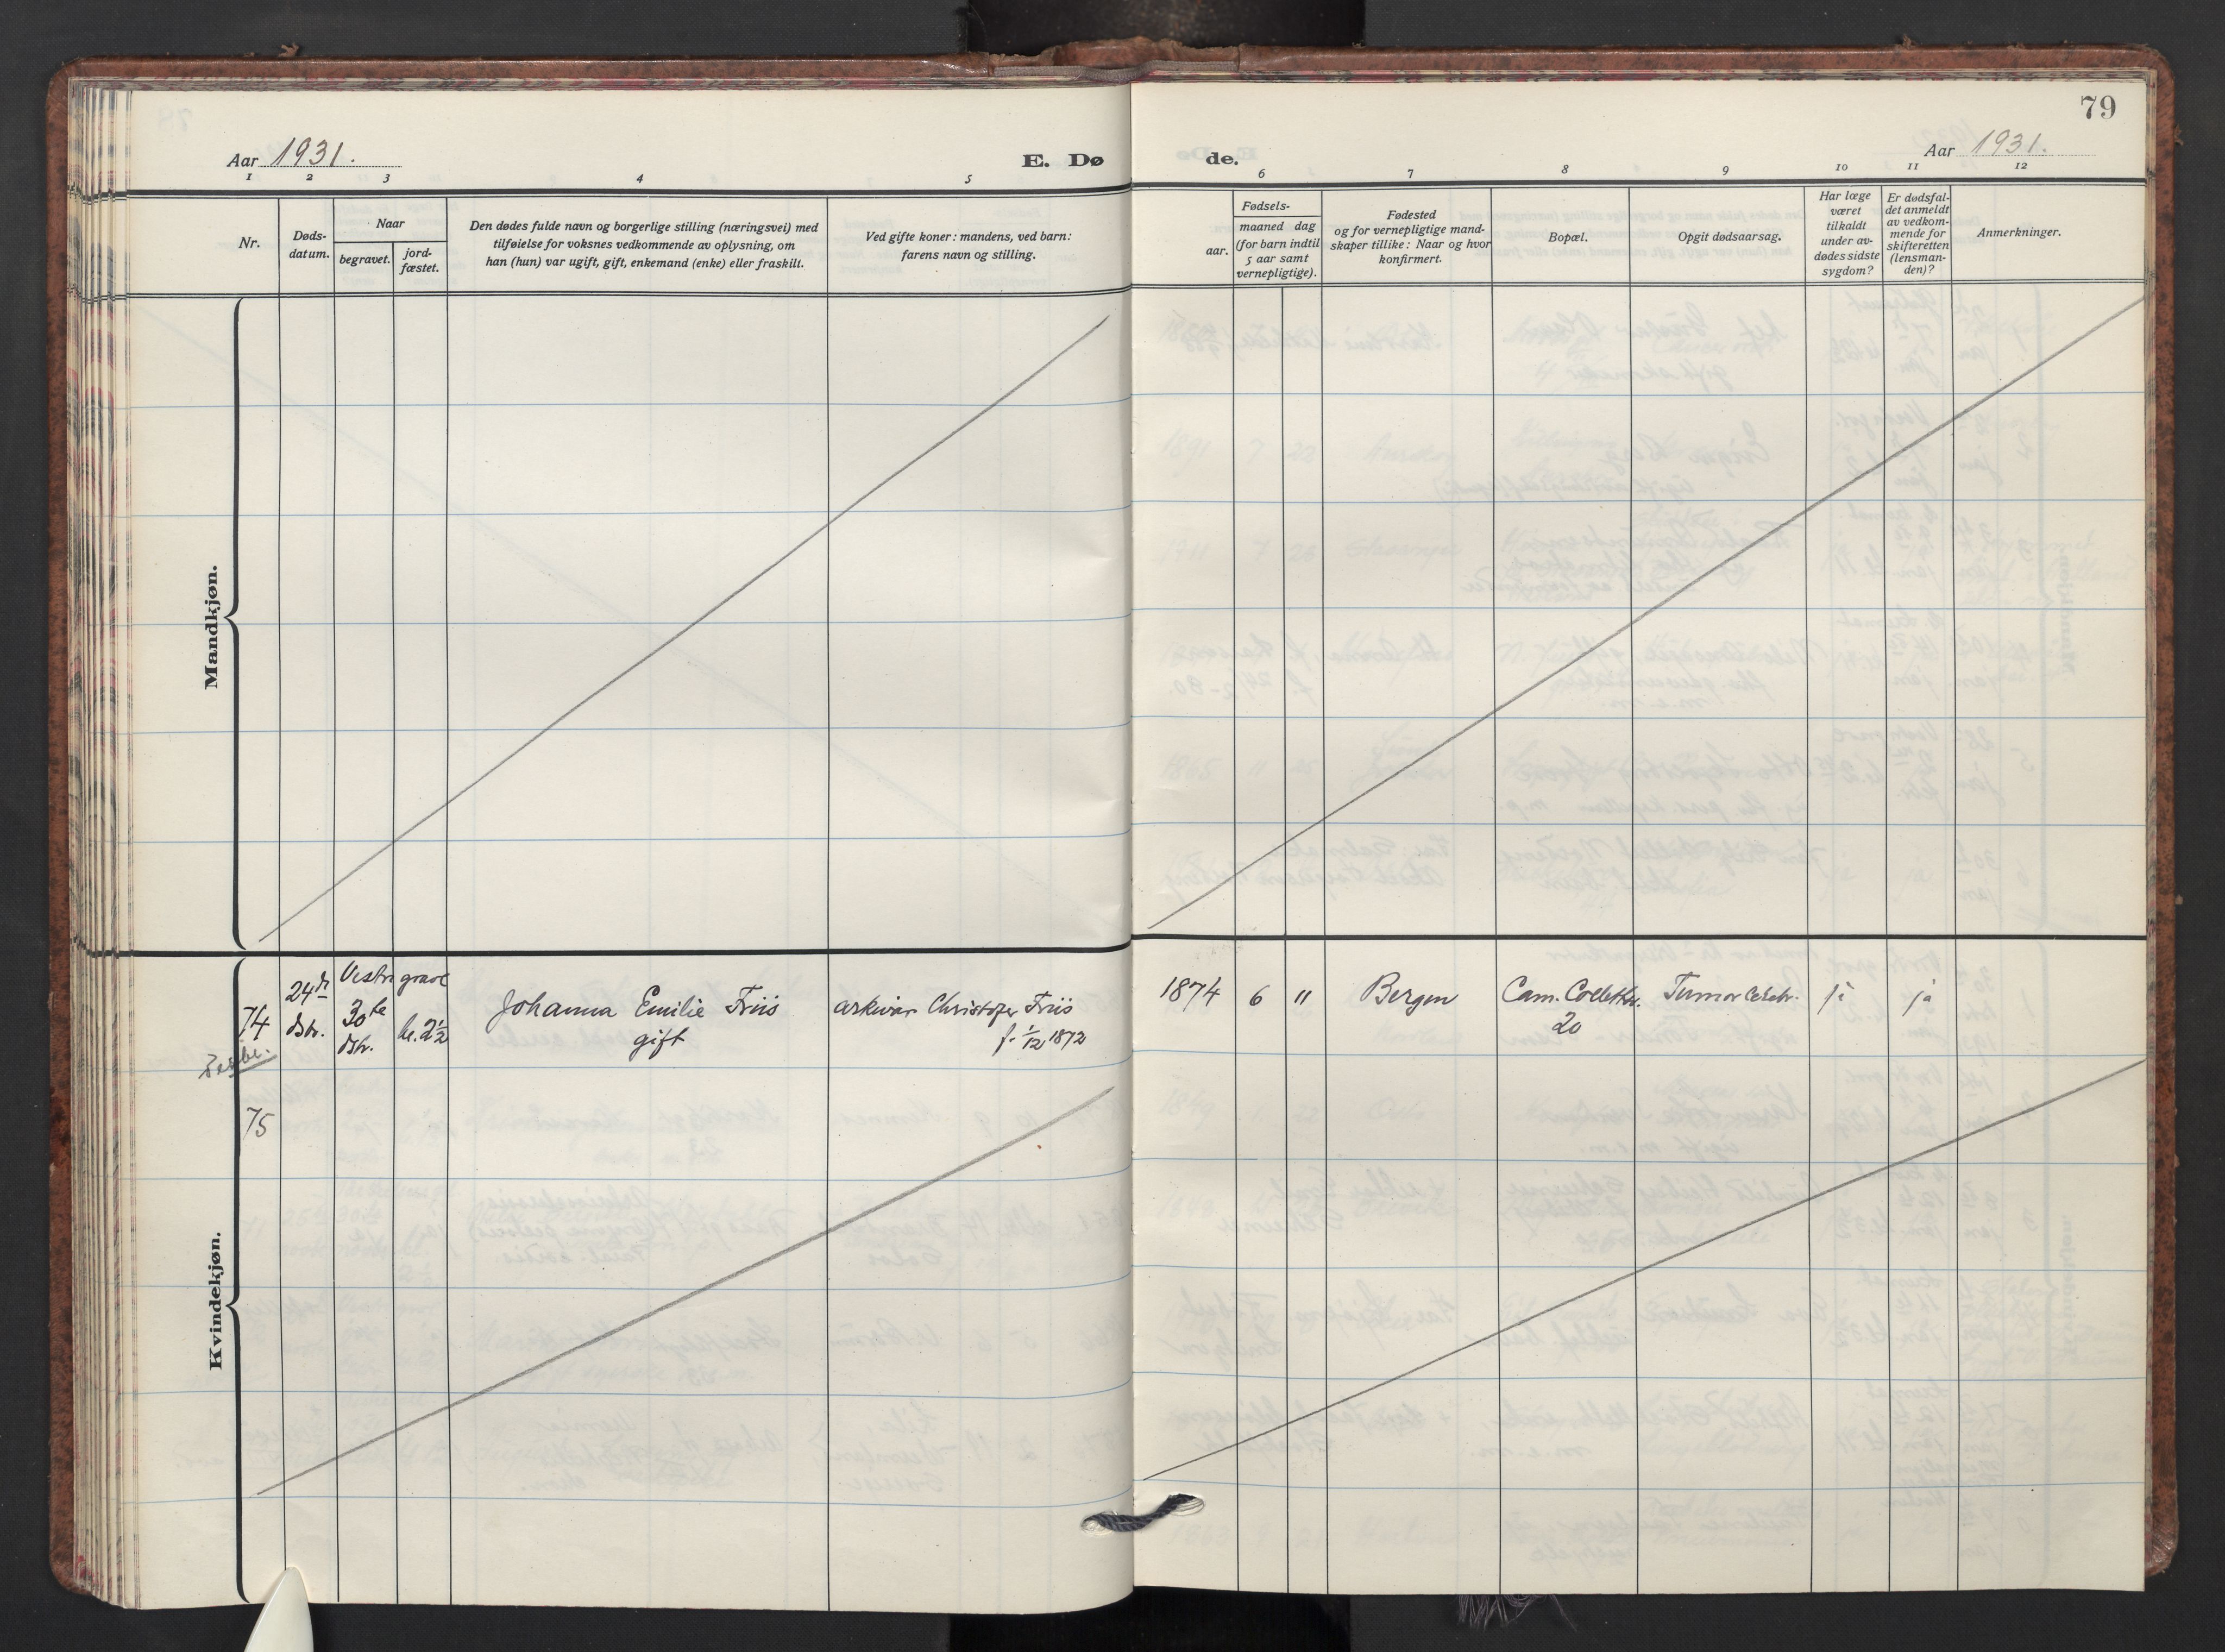 79
Aar 1931.
E. Dø
de.
Aar 1931.
1 2 3 4 5
6 7 8 9 10 11 12
Nr.
Døds-
datum.
Naar
begravet.
jord-
fæstet.
Den dødes fulde navn og borgerlige stilling (næringsvei) med
tilføielse for voksnes vedkommende av oplysning, om
han (hun) var ugift, gift, enkemand (enke) eller fraskilt.
Ved gifte koner: mandens, ved barn:
farens navn og stilling.
Fødsels-
aar.
maaned dag
(for barn indtil
5 aar samt
vernepligtige).
Fødested
og for vernepligtige mand-
skaper tillike: Naar og hvor
konfirmert.
Bopæl.
Opgit dødsaarsag.
Har læge
været
tilkaldt
under av-
dødes sidste
sygdom?
Er dødsfal-
det anmeldt
av vedkom-
mende for
skifteretten
(lensman-
den)?
Anmerkninger.
Mandkjøn.
Kvindekjøn.
74
24de
dsbr.
Vestre grave
30te
dsbr.
kl. 2½
Johanna Emilie Friis
gift
arkivar Christofer Friis
f. 1/12 1872
1874 6 11 Bergen
Cam. Colletts v.
20
Tumor cerebr.
ja
ja
75